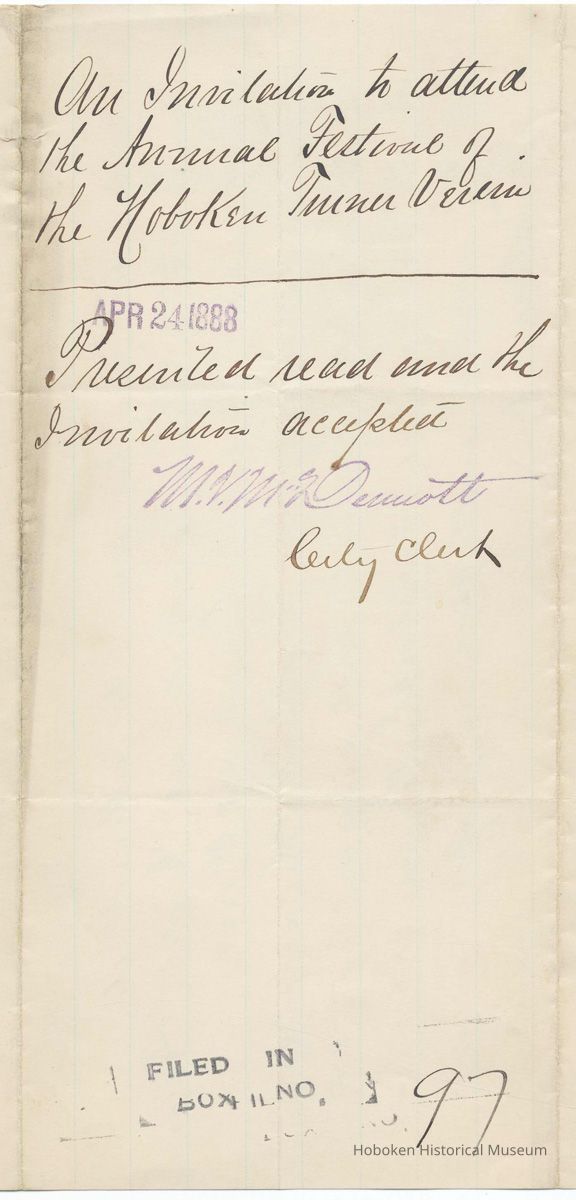 An Invitation to attend
the Annual Festival of
the Hoboken Turner Verein
APR 24 1888
Presented read and the
Invitation accepted
McDermott
City Clerk
FILED IN
BOX NO.
97
Hoboken Historical Museum